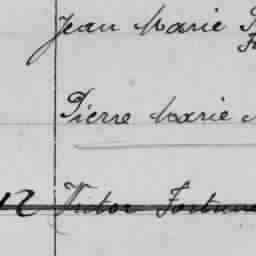 Jean Marie
Pierre Marie
12 Victor Fortuné